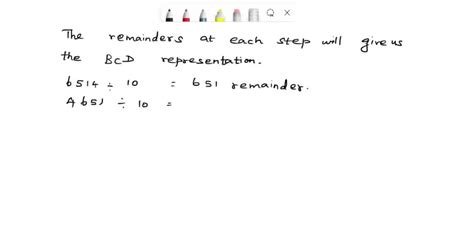 The remainders at each step will give us
the BCD representation.
6514 ÷ 10 = 651 remainder.
A 651 ÷ 10 =